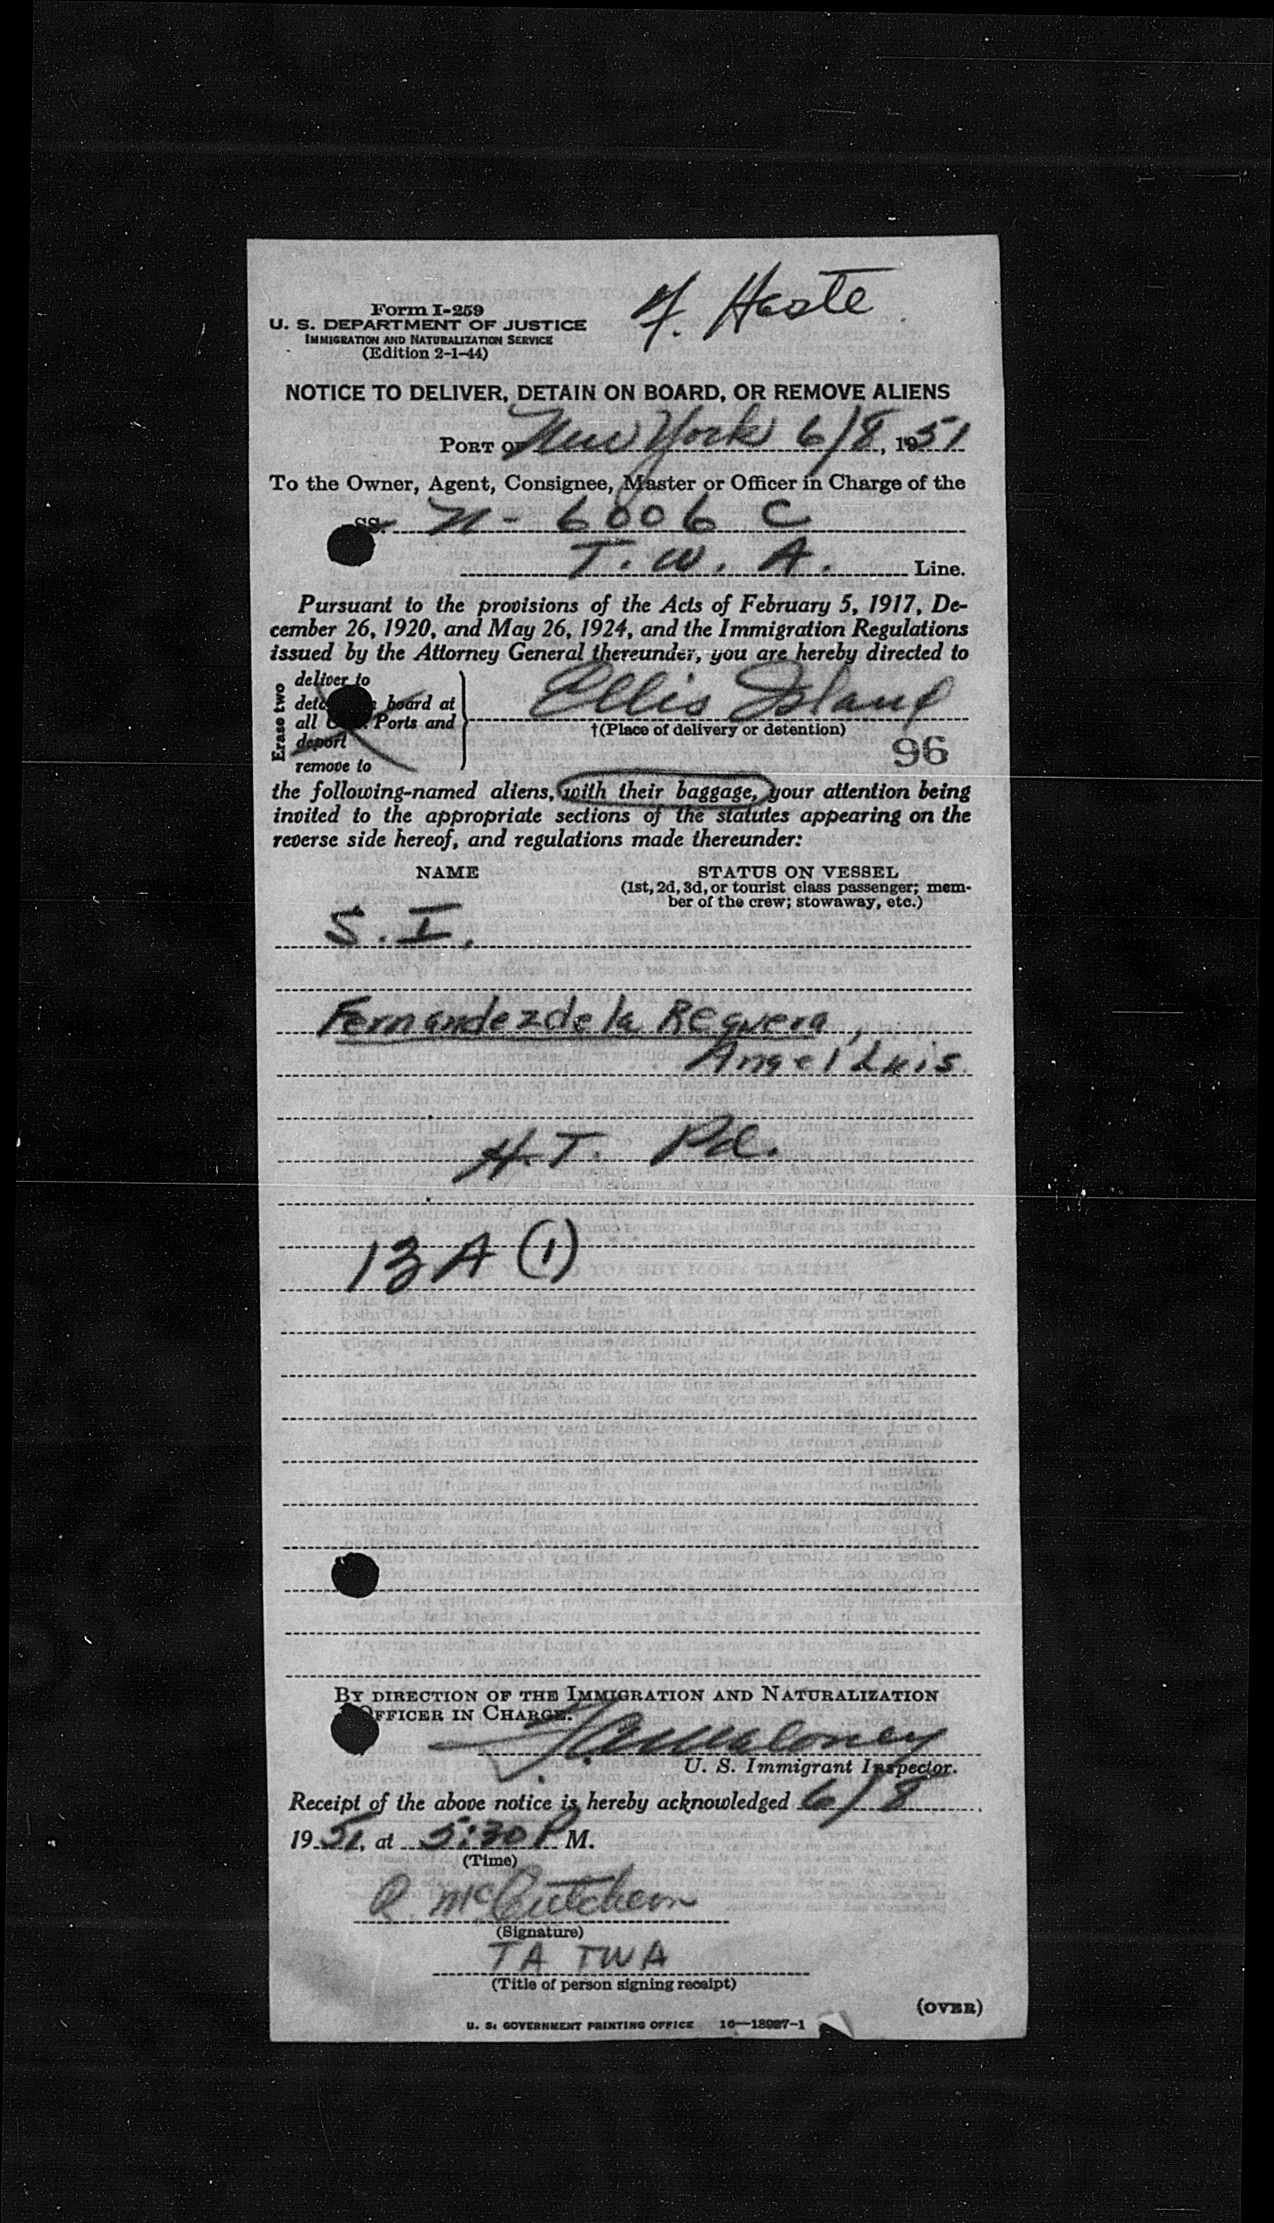 Form I-259
U. S. DEPARTMENT OF JUSTICE
IMMIGRATION AND NATURALIZATION SERVICE
(Edition 2-1-44)
NOTICE TO DELIVER, DETAIN ON BOARD, OR REMOVE ALIENS
PORT OF New York 6/8, 1951
To the Owner, Agent, Consignee, Master or Officer in Charge of the
SS. N-6006 C
T. W. A. Line.
Pursuant to the provisions of the Acts of February 5, 1917, De-
cember 26, 1920, and May 26, 1924, and the Immigration Regulations
issued by the Attorney General thereunder, you are hereby directed to
Erase two
deliver to
board at
all Ports and
deport
remove to
Ellis Island
†(Place of delivery or detention)
96
the following-named aliens, with their baggage, your attention being
invited to the appropriate sections of the statutes appearing on the
reverse side hereof, and regulations made thereunder:
NAME STATUS ON VESSEL
(1st, 2d, 3d, or tourist class passenger; mem-
ber of the crew; stowaway, etc.)
S. I.
Fernandez de la Reguera,
Angel Luis
H.T. Pd.
13 A (1)
BY DIRECTION OF THE IMMIGRATION AND NATURALIZATION
OFFICER IN CHARGE:
Maloney
U. S. Immigrant Inspector.
Receipt of the above notice is hereby acknowledged 6/8
1951, at 5:30 P M.
(Time)
R. McCutcheon
(Signature)
TA TWA
(Title of person signing receipt)
(OVER)
U. S. GOVERNMENT PRINTING OFFICE 16—18927-1